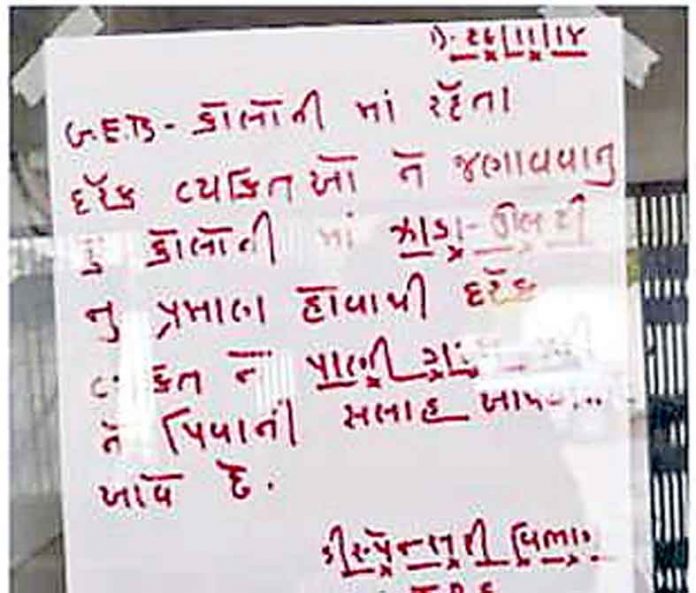 તા. ૨૬/૧૧/૧૪
G.E.B- કોલોની માં રહેતા
દરેક વ્યકિત ઓ ને જણાવવાનુ
કે કોલોની માં ઝાડા-ઉલટી
નુ પ્રમાણ હોવાથી દરેક
વ્યકિત ને પાણી
ને પિવાની સલાહ આપવામાં
આવે છે.
ડીસ્પેન્સરી વિભાગ